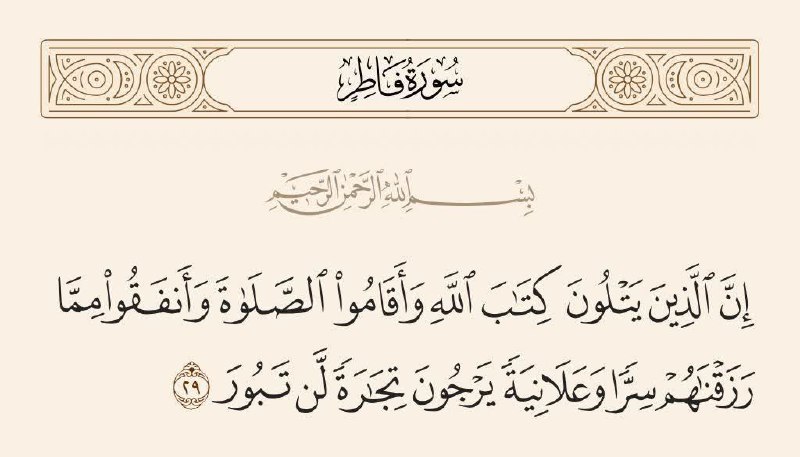 سُورَةُ فَاطِرٍ
بِسْمِ ٱللَّهِ ٱلرَّحْمَٰنِ ٱلرَّحِيمِ
إِنَّ ٱلَّذِينَ يَتْلُونَ كِتَٰبَ ٱللَّهِ وَأَقَامُوا۟ ٱلصَّلَوٰةَ وَأَنفَقُوا۟ مِمَّا
رَزَقْنَٰهُمْ سِرًّا وَعَلَانِيَةً يَرْجُونَ تِجَٰرَةً لَّن تَبُورَ ٢٩